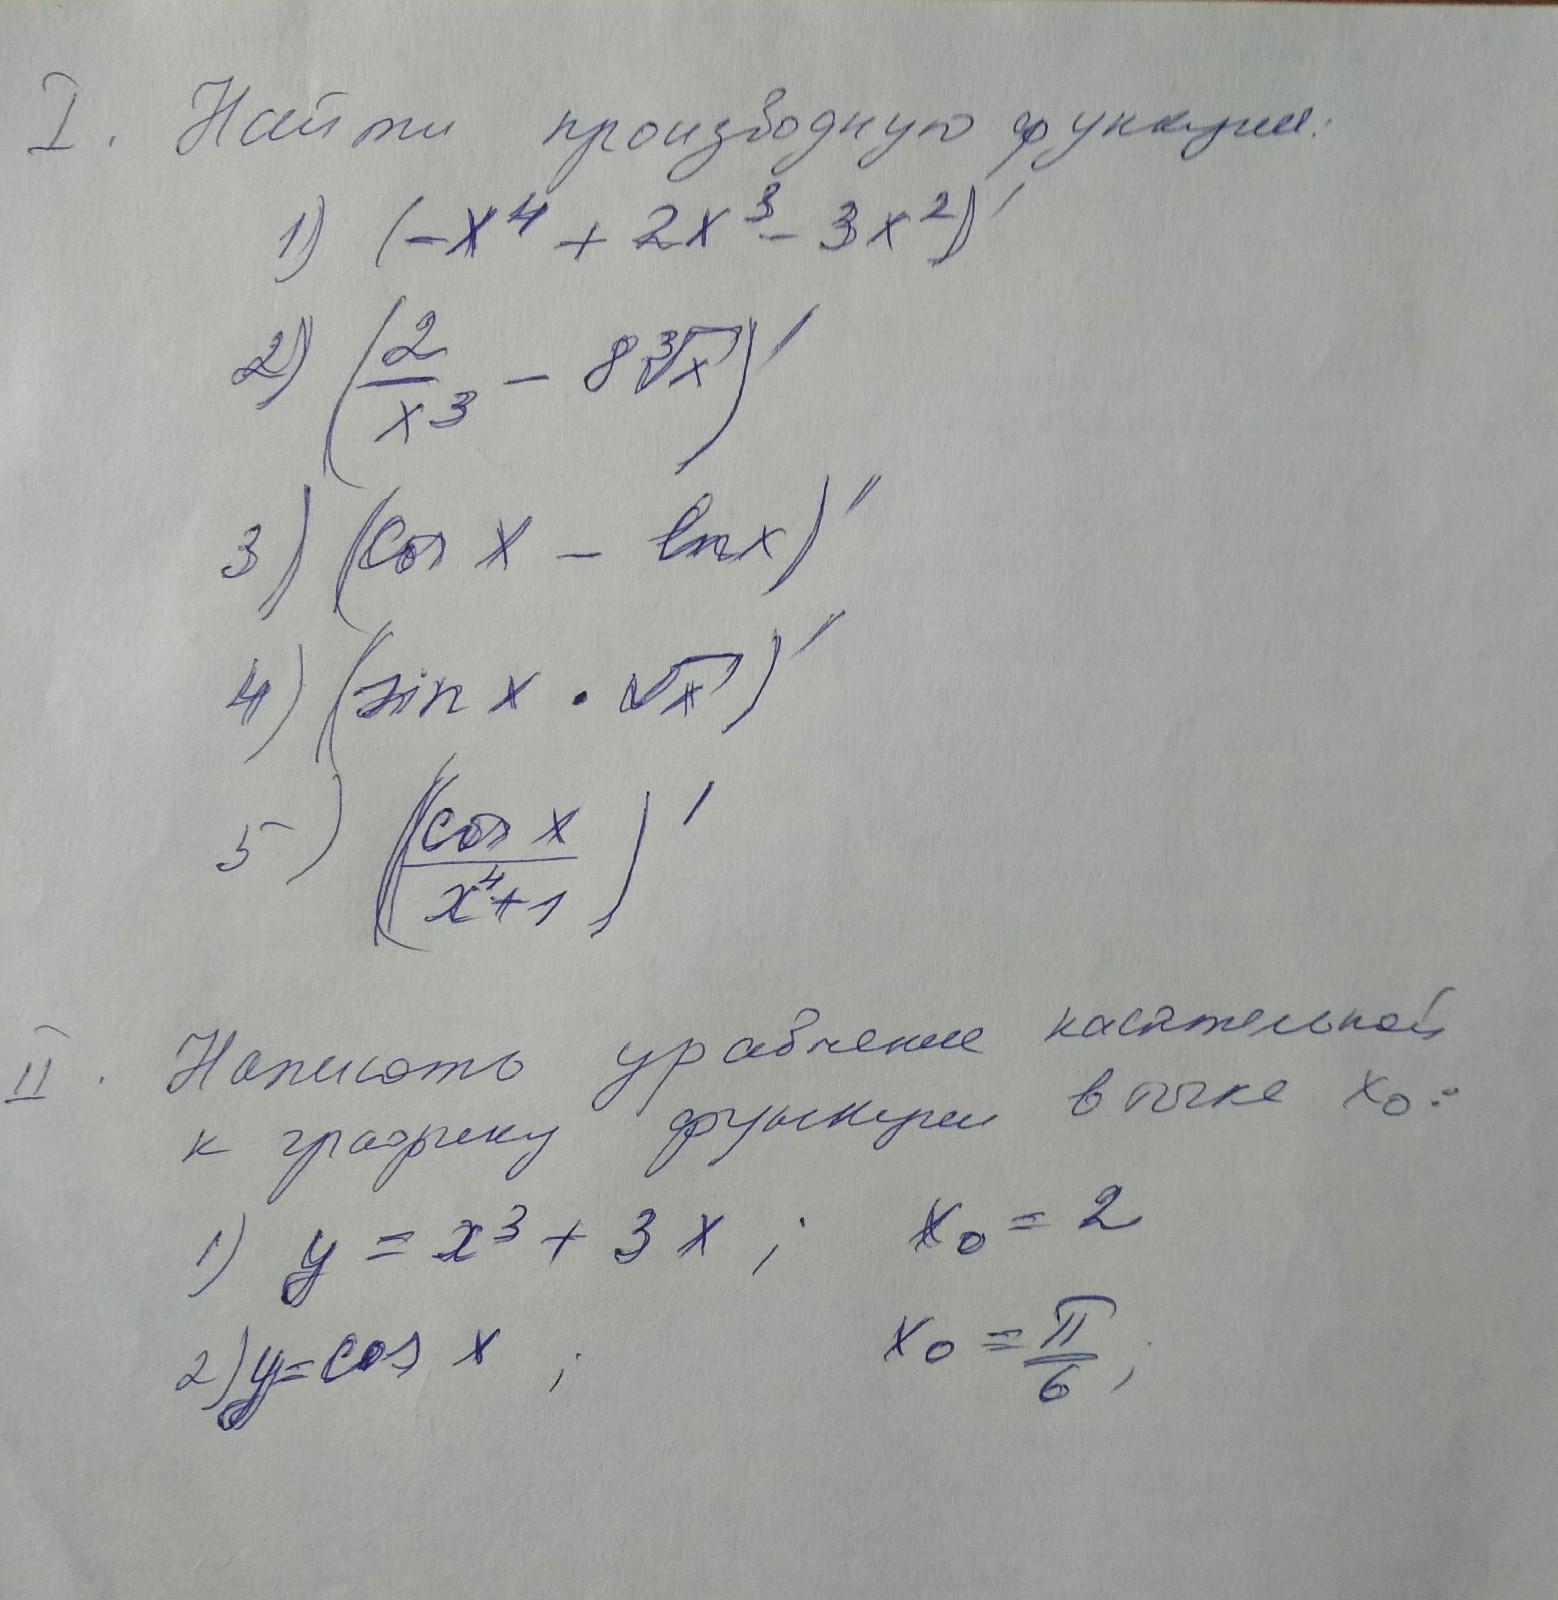 I. Найти производную функции:
1) (-x⁴ + 2x³ - 3x²)′
2) (2/x³ - 8∛x)′
3) (cos x - ln x)′
4) (sin x · √x)′
5) (cos x/x⁴+1)′
II. Написать уравнение касательной
к графику функции в точке x₀:
1) y = x³ + 3x ; x₀ = 2
2) y = cos x ; x₀ = π/6 ;